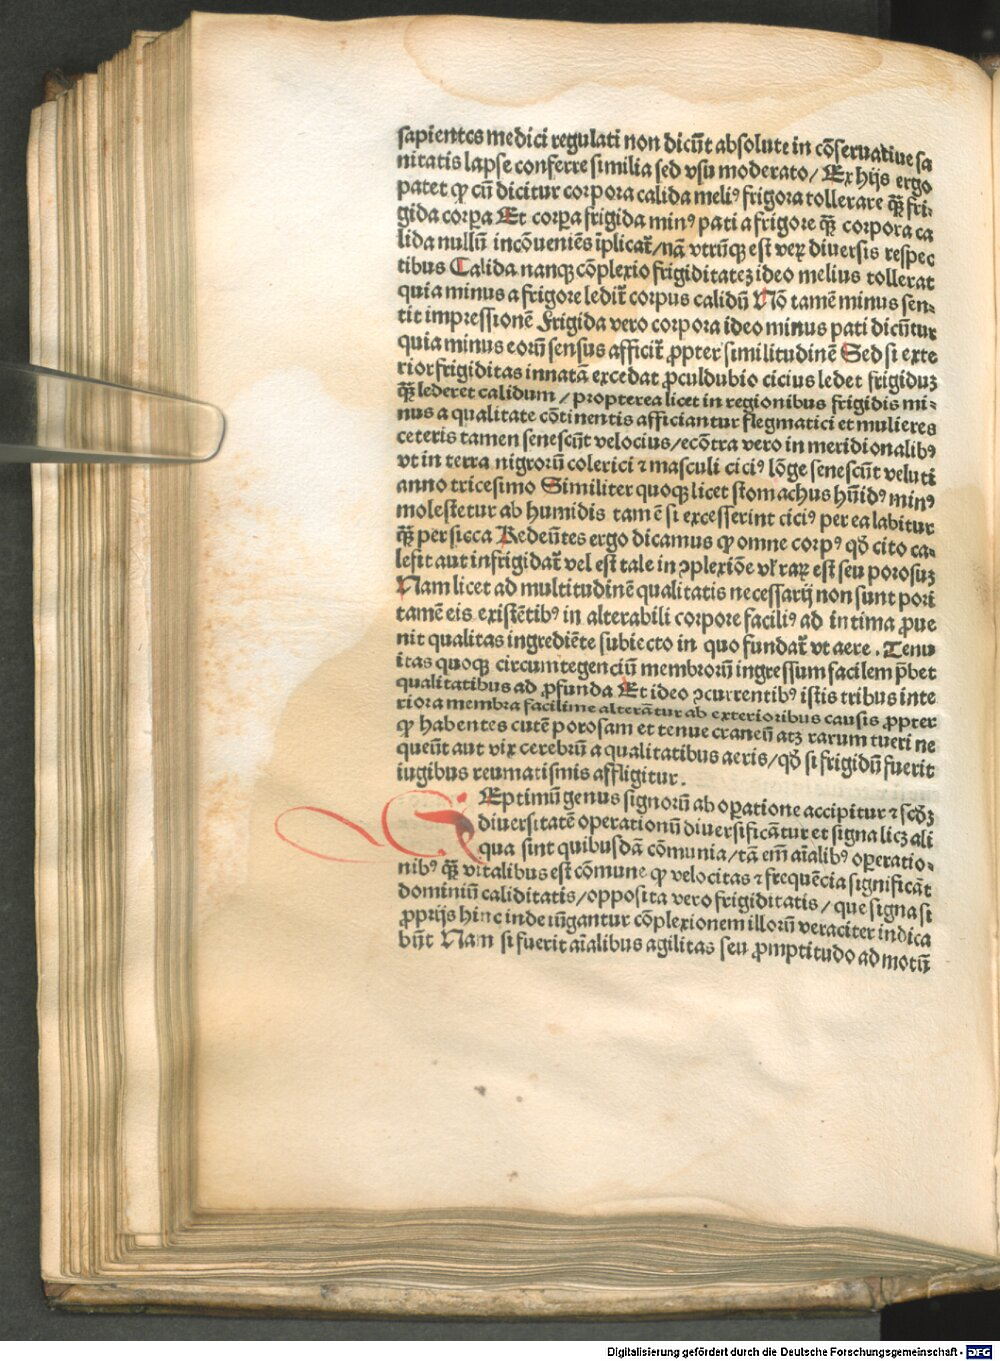 sapientes medici regulati non dicūt absolute in cōseruatiue sa
nitatis lapse conferre similia sed vsu moderato/ Ex hijs ergo
patet ꝙ cū dicitur corpora calida meliꝰ frigora tollerare q̄ꝫ fri⸗
gida corꝑa Et corꝑa frigida minꝰ pati a frigore q̄ꝫ corpora ca
lida nullū incōueniēs īplicat̄/nā vtrūqꝫ est veꝝ diuersis respec
tibus Calida nanqꝫ cōplexio frigiditateꝫ ideo melius tollerat
quia minus a frigore ledit̄ corpus calidū Nō tamē minus sen⸗
tit impressionē Frigida vero corpora ideo minus pati dicūtur
quia minus eorū sensus afficit̄ ꝓpter similitudinē Sed si exte
rior frigiditas innatā excedat ꝓculdubio cicius ledet frigiduꝫ
q̄ꝫ lederet calidum / propterea licet in regionibus frigidis mi⸗
nus a qualitate cōtinentis afficiantur flegmatici et mulieres
ceteris tamen senescūt velocius/ecōtra vero in meridionalibꝰ
vt in terra nigrorū colerici ⁊ masculi ciciꝰ lōge senescūt veluti
anno tricesimo Similiter quoqꝫ licet stomachus hūidꝰ minꝰ
molestetur ab humidis tamē si excesserint ciciꝰ per ea labitur
q̄ꝫ per sicca Redeūtes ergo dicamus ꝙ omne corpꝰ qd̄ cito ca⸗
lefit aut infrigidat̄ vel est tale in ꝯplexiōe vl̄ raꝝ est seu porosuꝫ
Nam licet ad multitudinē qualitatis necessarij non sunt pori
tamē eis existētibꝰ in alterabili corpore faciliꝰ ad intima ꝓue
nit qualitas ingrediēte subiecto in quo fundat̄ vt aere . Tenu
itas quoqꝫ circumtegenciū membrorū ingressum facilem p̄bet
qualitatibus ad ꝓfunda Et ideo ꝯcurrentibꝰ istis tribus inte
riora membra facilime alterātur ab exterioribus causis ꝓpter
ꝙ habentes cutē porosam et tenue craneū atꝫ rarum tueri ne
queūt aut vix cerebrū a qualitatibus aeris/qd̄ si frigidū fuerit
iugibus reumatismis affligitur .
SEptimū genus signorū ab oꝑatione accipitur ⁊ scd̄ꝫ
diuersitatē operationū diuersificātur et signa licꝫ ali
qua sint quibusdā cōmunia/tā em̄ aīalibꝰ operatio⸗
nibꝰ q̄ꝫ vitalibus est cōmune ꝙ velocitas ⁊ frequēcia significāt
dominiū caliditatis/opposita vero frigiditatis/ que signa si
ꝓprijs hinc inde iūgantur cōplexionem illorū veraciter indica
būt Nam si fuerit aīalibus agilitas seu ꝓmptitudo ad motū
Digitalisierung gefördert durch die Deutsche Forschungsgemeinschaft - DFG